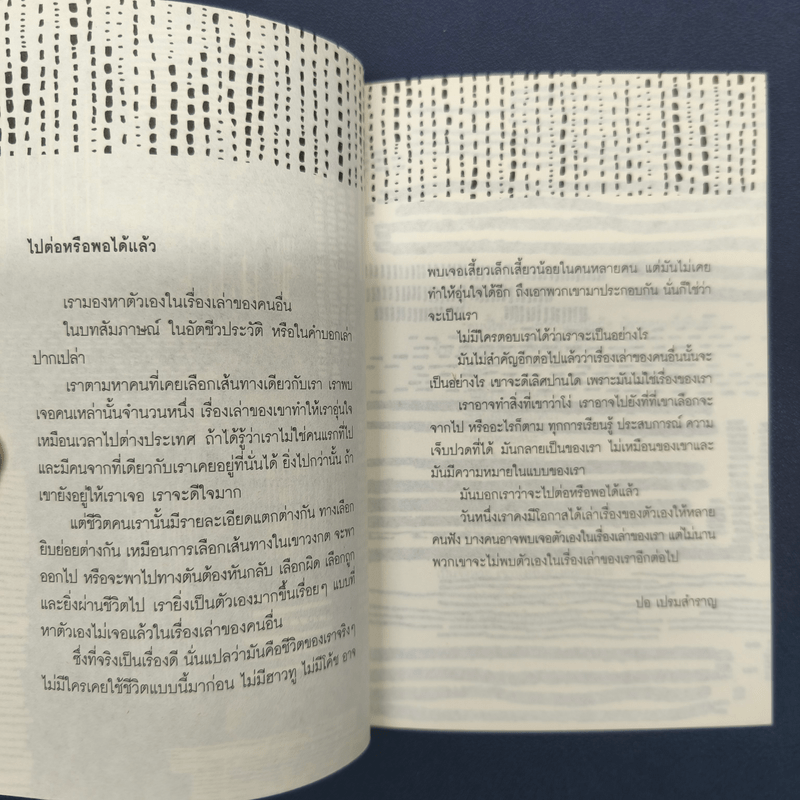 ไปต่อหรือพอได้แล้ว
เรามองหาตัวเองในเรื่องเล่าของคนอื่น
ในบทสัมภาษณ์ ในอัตชีวประวัติ หรือในคำบอกเล่า
ปากเปล่า
เราตามหาคนที่เคยเลือกเส้นทางเดียวกับเรา เราพบ
เจอคนเหล่านั้นจำนวนหนึ่ง เรื่องเล่าของเขาทำให้เราอุ่นใจ
เหมือนเวลาไปต่างประเทศ ถ้าได้รู้ว่าเราไม่ใช่คนแรกที่ไป
และมีคนจากที่เดียวกับเราเคยอยู่ที่นั่นได้ ยิ่งไปกว่านั้น ถ้า
เขายังอยู่ให้เราเจอ เราจะดีใจมาก
แต่ชีวิตคนเรานั้นมีรายละเอียดแตกต่างกัน ทางเลือก
ยิบย่อยต่างกัน เหมือนการเลือกเส้นทางในเขาวงกต จะพา
ออกไป หรือจะพาไปทางตันต้องหันกลับ เลือกผิด เลือกถูก
และยิ่งผ่านชีวิตไป เรายิ่งเป็นตัวเองมากขึ้นเรื่อยๆ แบบที่
หาตัวเองไม่เจอแล้วในเรื่องเล่าของคนอื่น
ซึ่งที่จริงเป็นเรื่องดี นั่นแปลว่ามันคือชีวิตของเราจริงๆ
ไม่มีใครเคยใช้ชีวิตแบบนี้มาก่อน ไม่มีฮาวทู ไม่มีโค้ช อาจ
พบเจอเสี้ยวเล็กเสี้ยวน้อยในคนหลายคน แต่มันไม่เคย
ทำให้อุ่นใจได้อีก ถึงเอาพวกเขามาประกอบกัน นั่นก็ใช่ว่า
จะเป็นเรา
ไม่มีใครตอบเราได้ว่าเราจะเป็นอย่างไร
มันไม่สำคัญอีกต่อไปแล้วว่าเรื่องเล่าของคนอื่นนั้นจะ
เป็นอย่างไร เขาจะดีเลิศปานใด เพราะมันไม่ใช่เรื่องของเรา
เราอาจทำสิ่งที่เขาว่าโง่ เราอาจไปยังที่ที่เขาเลือกจะ
จากไป หรืออะไรก็ตาม ทุกการเรียนรู้ ประสบการณ์ ความ
เจ็บปวดที่ได้ มันกลายเป็นของเรา ไม่เหมือนของเขาและ
มันมีความหมายในแบบของเรา
มันบอกเราว่าจะไปต่อหรือพอได้แล้ว
วันหนึ่งเราคงมีโอกาสได้เล่าเรื่องของตัวเองให้หลาย
คนฟัง บางคนอาจพบเจอตัวเองในเรื่องเล่าของเรา แต่ไม่นาน
พวกเขาจะไม่พบตัวเองในเรื่องเล่าของเราอีกต่อไป
ปอ เปรมสำราญ